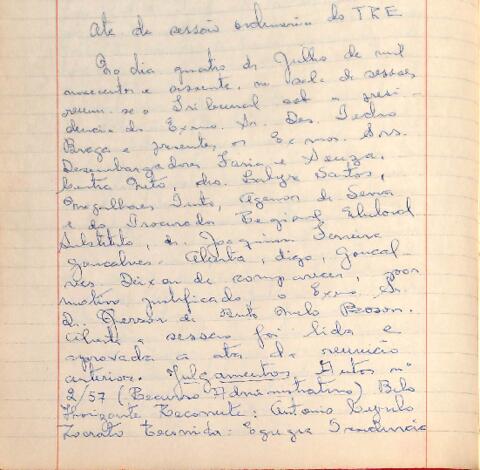 Ata da sessão ordinaria do TRE
No dia quatro de Julho de mil
novecentos e sessenta, na sala de sessões
reuniu-se o Tribunal sob a presi-
dencia do Exmo. Sr. Des. Pedro
Braga e presentes os Exmos. Srs.
Desembargadores Faria e Souza,
Cintra Neto, drs. Santos,
Magalhães Pinto, Agenor de Senna
e do Procurador Regional Eleitoral
Substituto, dr. Joaquim Ferreira
Gonçalves. Aberta, digo, Gonçal-
ves. Deixou de comparecer, por
motivo justificado, o Exmo. Sr.
Dr. Gerson de Melo Boson.
Aberta a sessão foi lida e
aprovada a ata da reunião
anterior. Julgamentos. Feitos nº
2/57 (Recurso Administrativo) Belo
Horizonte Recorrente: Antonio
Recorrida: Egregia Presidencia